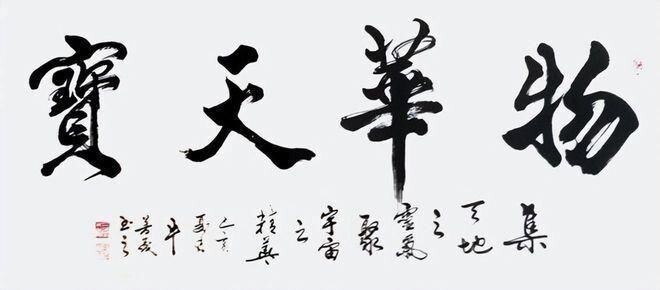 物華天寶
集
天地
之
靈氣
聚
宇宙
之
精華